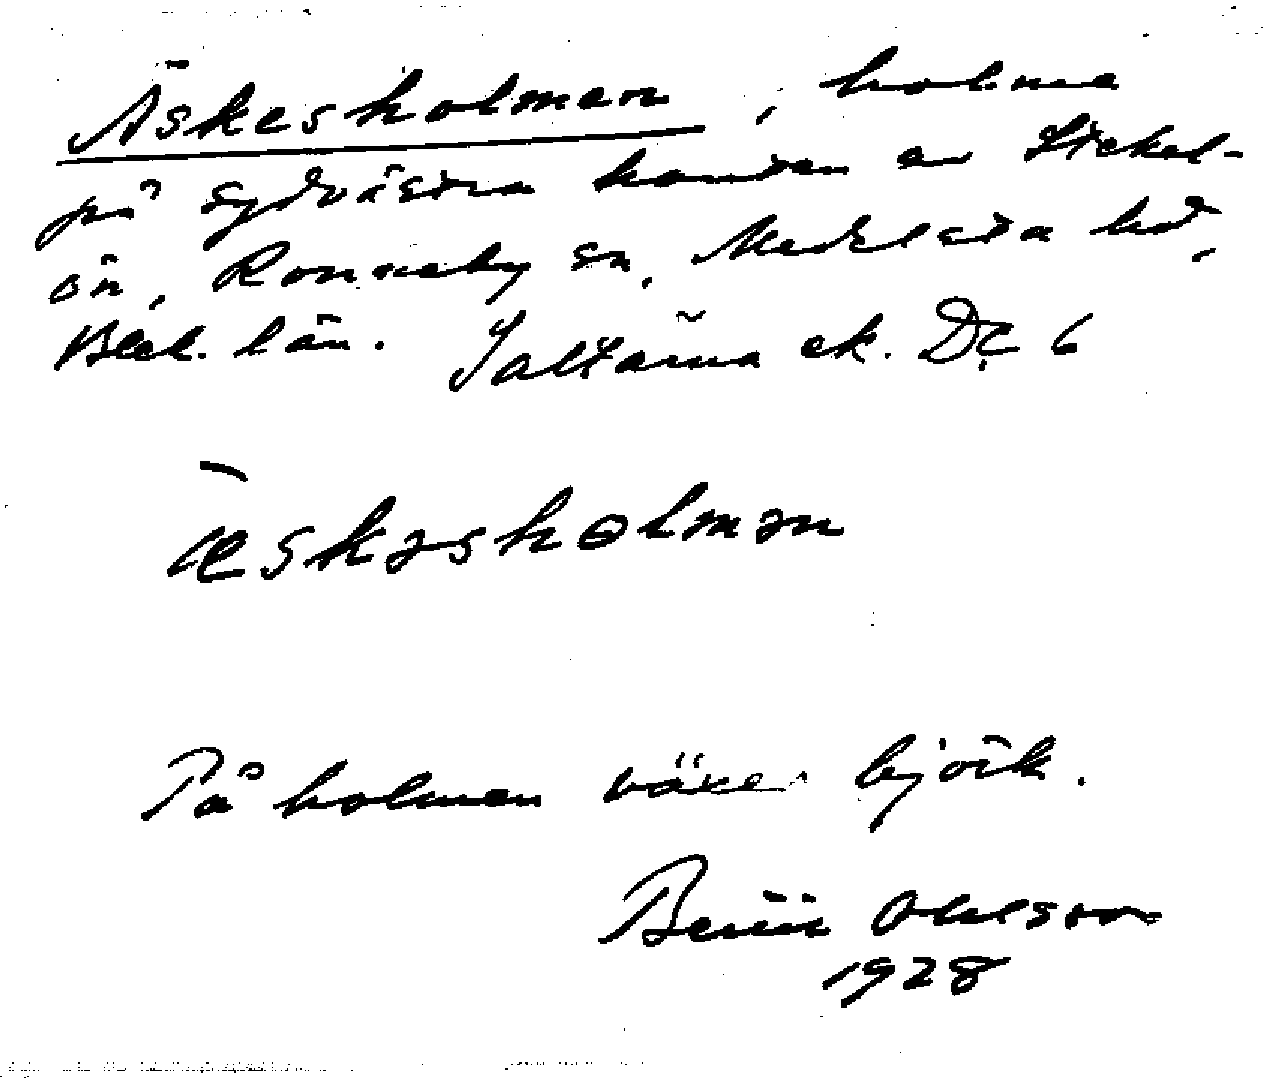 Äskesholmen, holme
på sydvästra kanten av Stekel-
ön, Ronneby sn, Medelsta hd,
Blek. län. Saltärna ek. DÇ 6
æskəsholmən
På holmen växer björk.
Bertil Ohlsson
1928